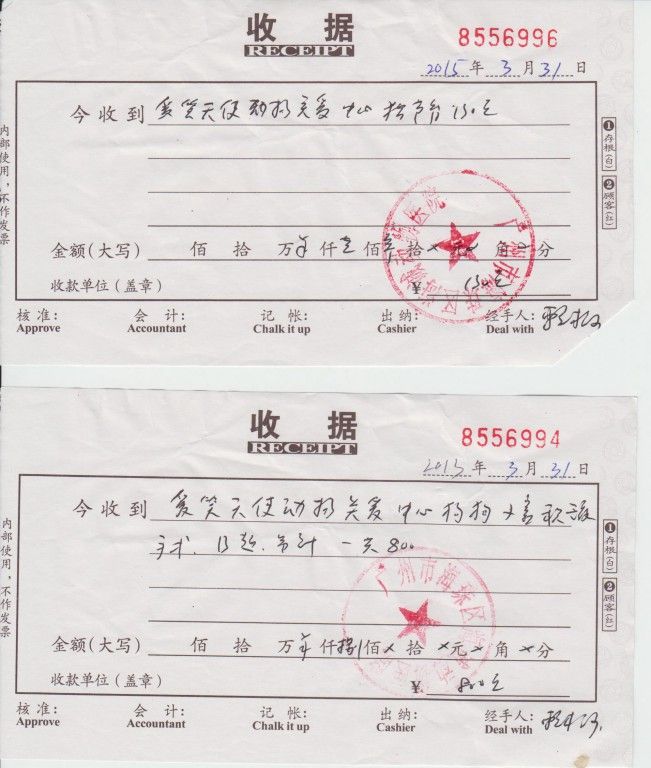 收 据
RECEIPT
8556996
2015 年 3 月 31 日
今收到 爱笑天使动物关爱中心
内部使用，不作发票
❶存根(白) ❷顾客(红)
金额(大写) 佰 拾 万 仟 佰 拾 × 元 × 角 × 分
收款单位(盖章) ¥
广州市海珠区 医院
核准: 会计: 记帐: 出纳: 经手人:
Approve Accountant Chalk it up Cashier Deal with
收 据
RECEIPT
8556994
2015 年 3 月 31 日
今收到 爱笑天使动物关爱中心
一共800
内部使用，不作发票
❶存根(白) ❷顾客(红)
广州市海珠区
金额(大写) 佰 拾 万 仟 捌佰 × 拾 × 元 × 角 × 分
收款单位(盖章) ¥ 800元
核准: 会计: 记帐: 出纳: 经手人:
Approve Accountant Chalk it up Cashier Deal with